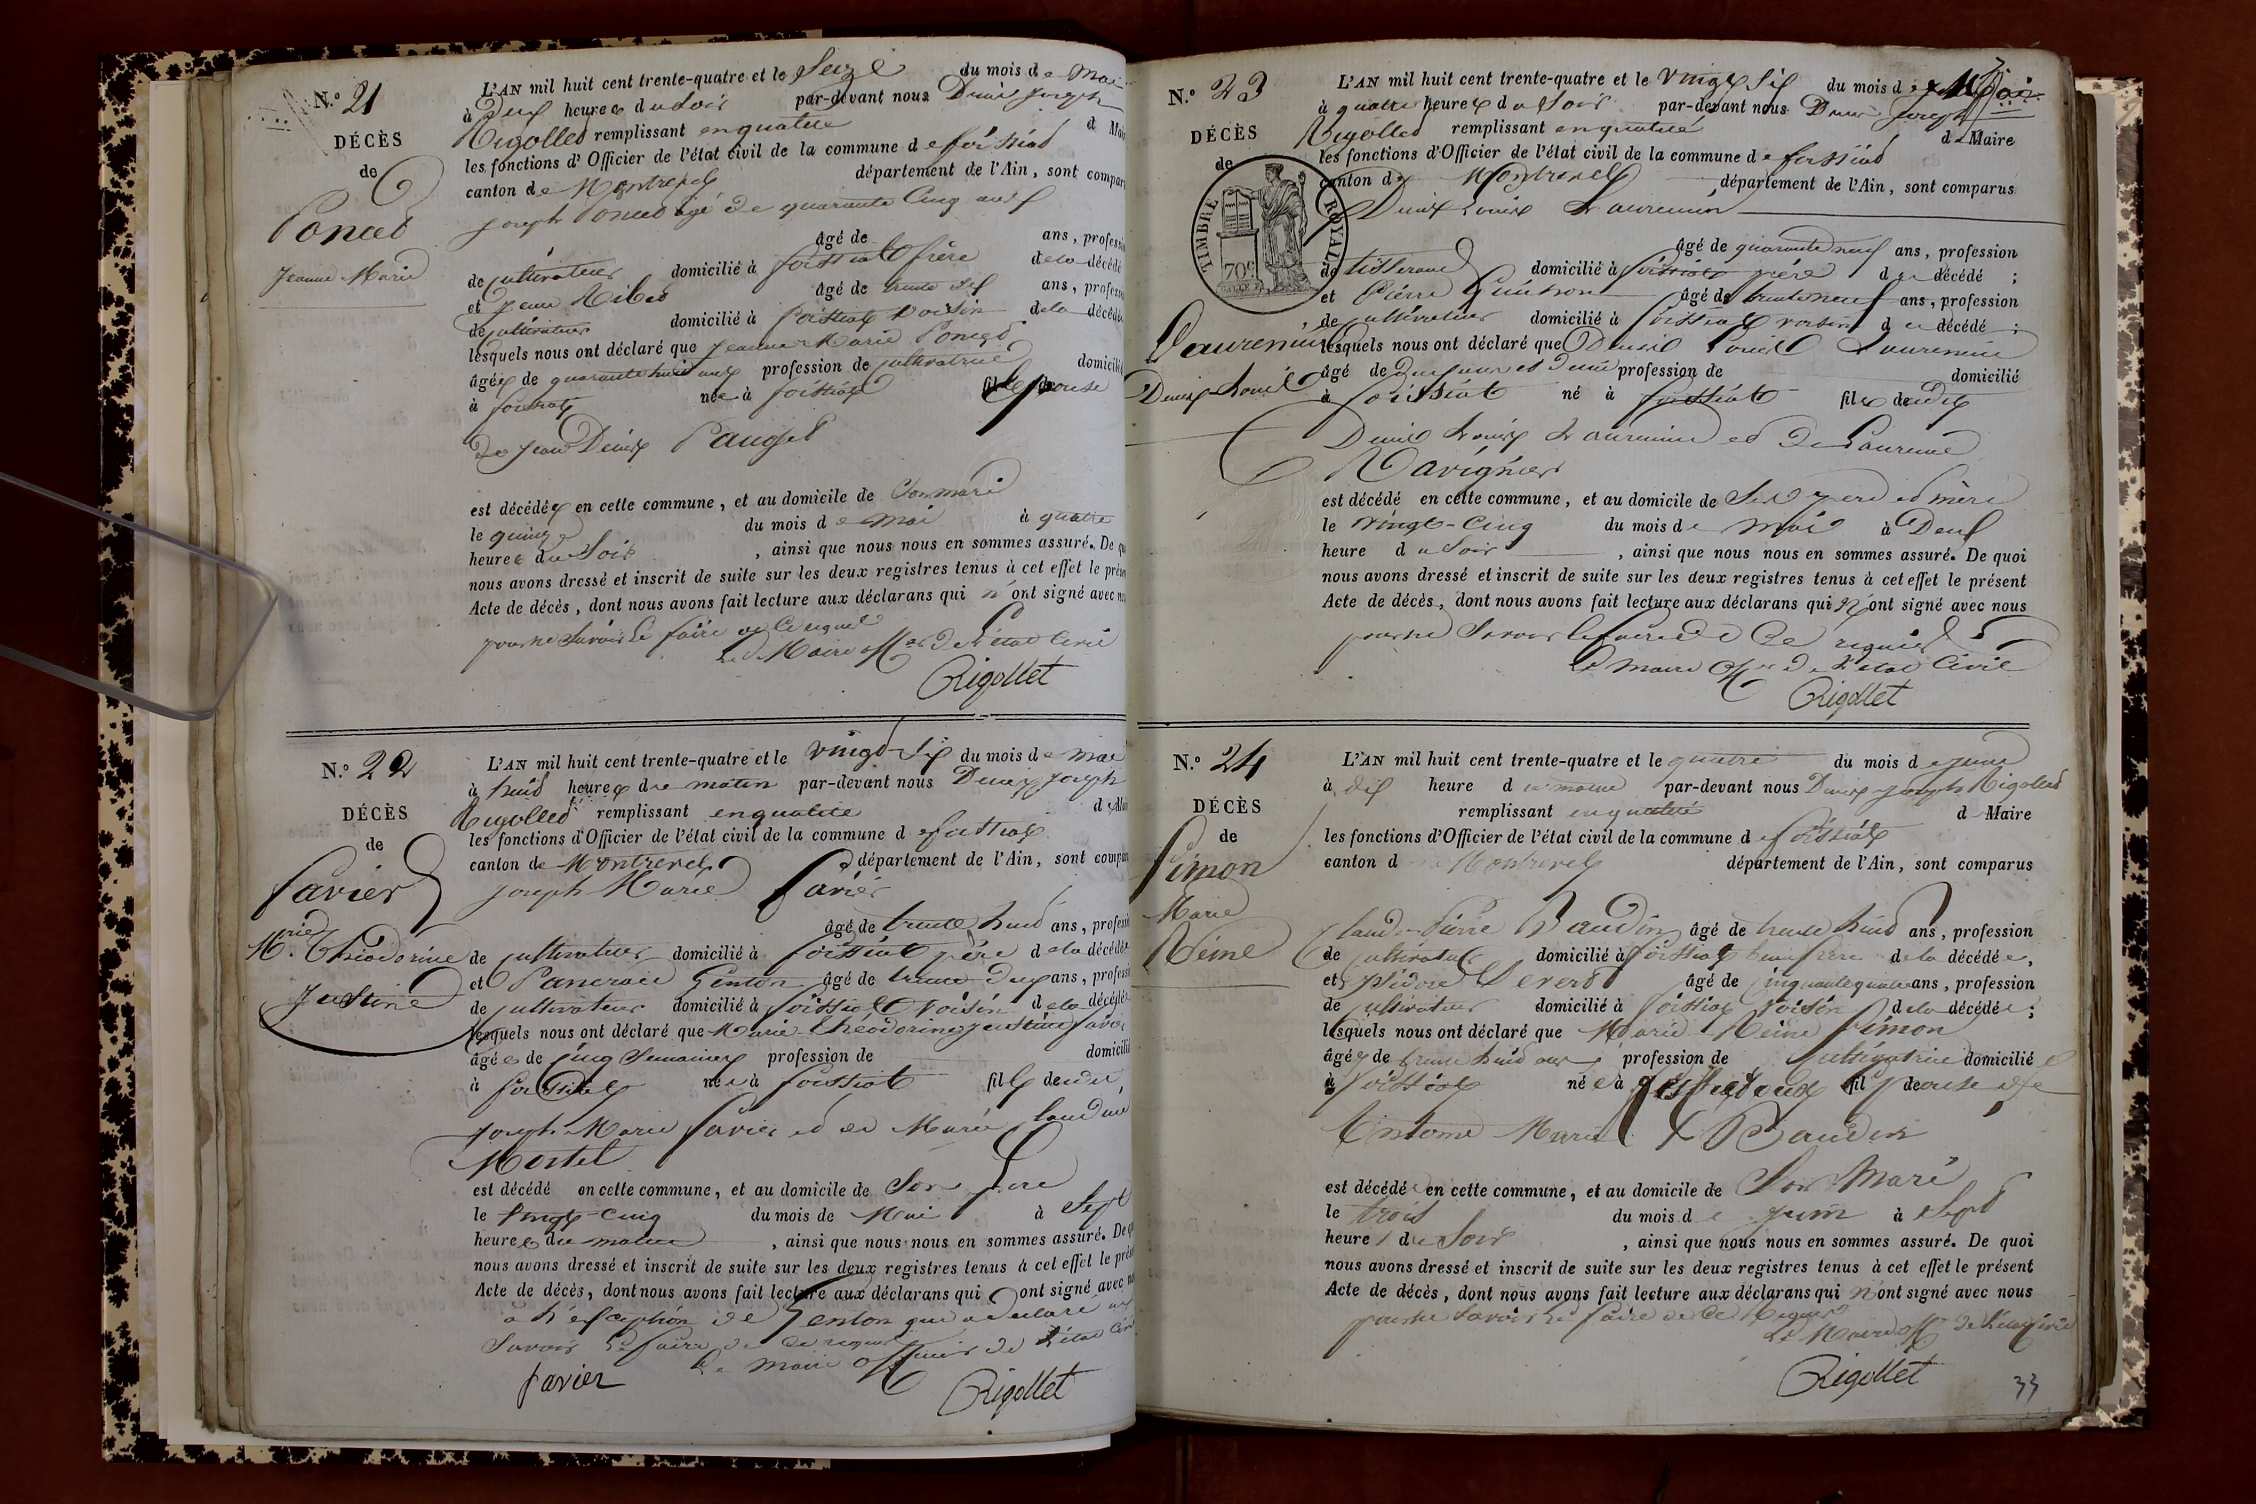 N.o 21
DÉCÈS
de
Poncet
Jeanne Marie
L'AN mil huit cent trente-quatre et le Seize du mois de mai
à Deux heures du Soir par-devant nous Denis Joseph
Rigollet remplissant en qualité d Mai
les fonctions d'Officier de l'état civil de la commune de foissiat
canton de Montrevel département de l'Ain, sont compar
Joseph Poncet âgé de quarante Cinq ans
âgé de ans, profess
de cultivateur domicilié à foissiat frère de la décédé
et Jean âgé de trente ans, profess
de cultivateur domicilié à foissiat voisin de la décédé
lesquels nous ont déclaré que Jeanne Marie Poncet
âgée de quarante huit ans profession de cultivatrice domicilié
à foissiat née à foissiat Epouse
de Jean Denis Pauget
est décédée en cette commune, et au domicile de Son mari
le quinze du mois de mai à quatre
heures du Soir , ainsi que nous nous en sommes assuré. De qu
nous avons dressé et inscrit de suite sur les deux registres tenus à cet effet le prése
Acte de décès, dont nous avons fait lecture aux déclarans qui n'ont signé avec no
pour ne Savoir le faire de Ce requis
Le Maire off.er de l'état Civil
Rigollet
N.o 22
DÉCÈS
de
favier
M.rie Théodorine
Justine
L'AN mil huit cent trente-quatre et le vingt Six du mois de mai
à huit heures du matin par-devant nous Denis Joseph
Rigollet remplissant en qualité de Mai
les fonctions d'Officier de l'état civil de la commune de foissiat
canton de Montrevel département de l'Ain, sont compar
Joseph Marie favier
âgé de trente huit ans, profess
de cultivateur domicilié à foissiat père de la décédée
et Pancrace Genton âgé de trente Deux ans, profess
de cultivateur domicilié à foissiat voisin de la décédée
lesquels nous ont déclaré que Marie théodorine Justine favier
âgée de cinq Semaines profession de domicilié
à foissiat née à foissiat fille dudit
Joseph Marie favier et de Marie Claudine
Mortel
est décédé en cette commune, et au domicile de Son père
le vingt Cinq du mois de Mai à Sept
heures du matin , ainsi que nous nous en sommes assuré. De q
nous avons dressé et inscrit de suite sur les deux registres tenus à cet effet le prés
Acte de décès, dont nous avons fait lecture aux déclarans qui ont signé avec n
à l'exception de Genton qui a déclaré ne
Savoir le faire de Ce requis
Le Maire officier de l'état Civil
favier Rigollet
N.o 23
DÉCÈS
de
TIMBRE ROYAL
70c
Laurencin
Denis Louis
L'AN mil huit cent trente-quatre et le vingt Six du mois de Mai
à quatre heures du Soir par-devant nous Denis Joseph
Rigollet remplissant en qualité de Maire
les fonctions d'Officier de l'état civil de la commune de foissiat
canton de Montrevel département de l'Ain, sont comparus
Denis Louis Laurencin
âgé de quarante neuf ans, profession
de tisserand domicilié à foissiat père du décédé ;
et Pierre âgé de trente neuf ans, profession
de cultivateur domicilié à foissiat voisin du décédé ;
lesquels nous ont déclaré que Denis Louis Laurencin
âgé de Deux jours et Demi profession de domicilié
à foissiat né à foissiat fils dudit
Denis Louis Laurencin et de Laurence
Ravignier
est décédé en cette commune, et au domicile de Ses père et mère
le vingt-Cinq du mois de Mai à Deux
heure du Soir , ainsi que nous nous en sommes assuré. De quoi
nous avons dressé et inscrit de suite sur les deux registres tenus à cet effet le présent
Acte de décès, dont nous avons fait lecture aux déclarans qui n'ont signé avec nous
pour ne Savoir le faire de Ce requis
Le Maire off.er de l'état Civil
Rigollet
N.o 24
DÉCÈS
de
Simon
Marie
Reine
L'AN mil huit cent trente-quatre et le quatre du mois de juin
à dix heure du matin par-devant nous Denis Joseph Rigollet
remplissant en qualité d Maire
les fonctions d'Officier de l'état civil de la commune de foissiat
canton d Montrevel département de l'Ain, sont comparus
Claude Pierre Baudin âgé de trente huit ans, profession
de cultivateur domicilié à foissiat beau frère de la décédée,
et âgé de Cinquante quatre ans, profession
de cultivateur domicilié à foissiat Voisin de la décédée ;
lesquels nous ont déclaré que Marie Reine Simon
âgée de trente huit ans profession de Cultivatrice domicilié
à foissiat née à Epouse de
Antoine Marie Baudin
est décédé en cette commune, et au domicile de Son Mari
le trois du mois de Juin à Sept
heure du Soir , ainsi que nous nous en sommes assuré. De quoi
nous avons dressé et inscrit de suite sur les deux registres tenus à cet effet le présent
Acte de décès, dont nous avons fait lecture aux déclarans qui n'ont signé avec nous
pour ne Savoir le faire de Ce Requis
Le Maire off.er de l'état Civil
Rigollet
33